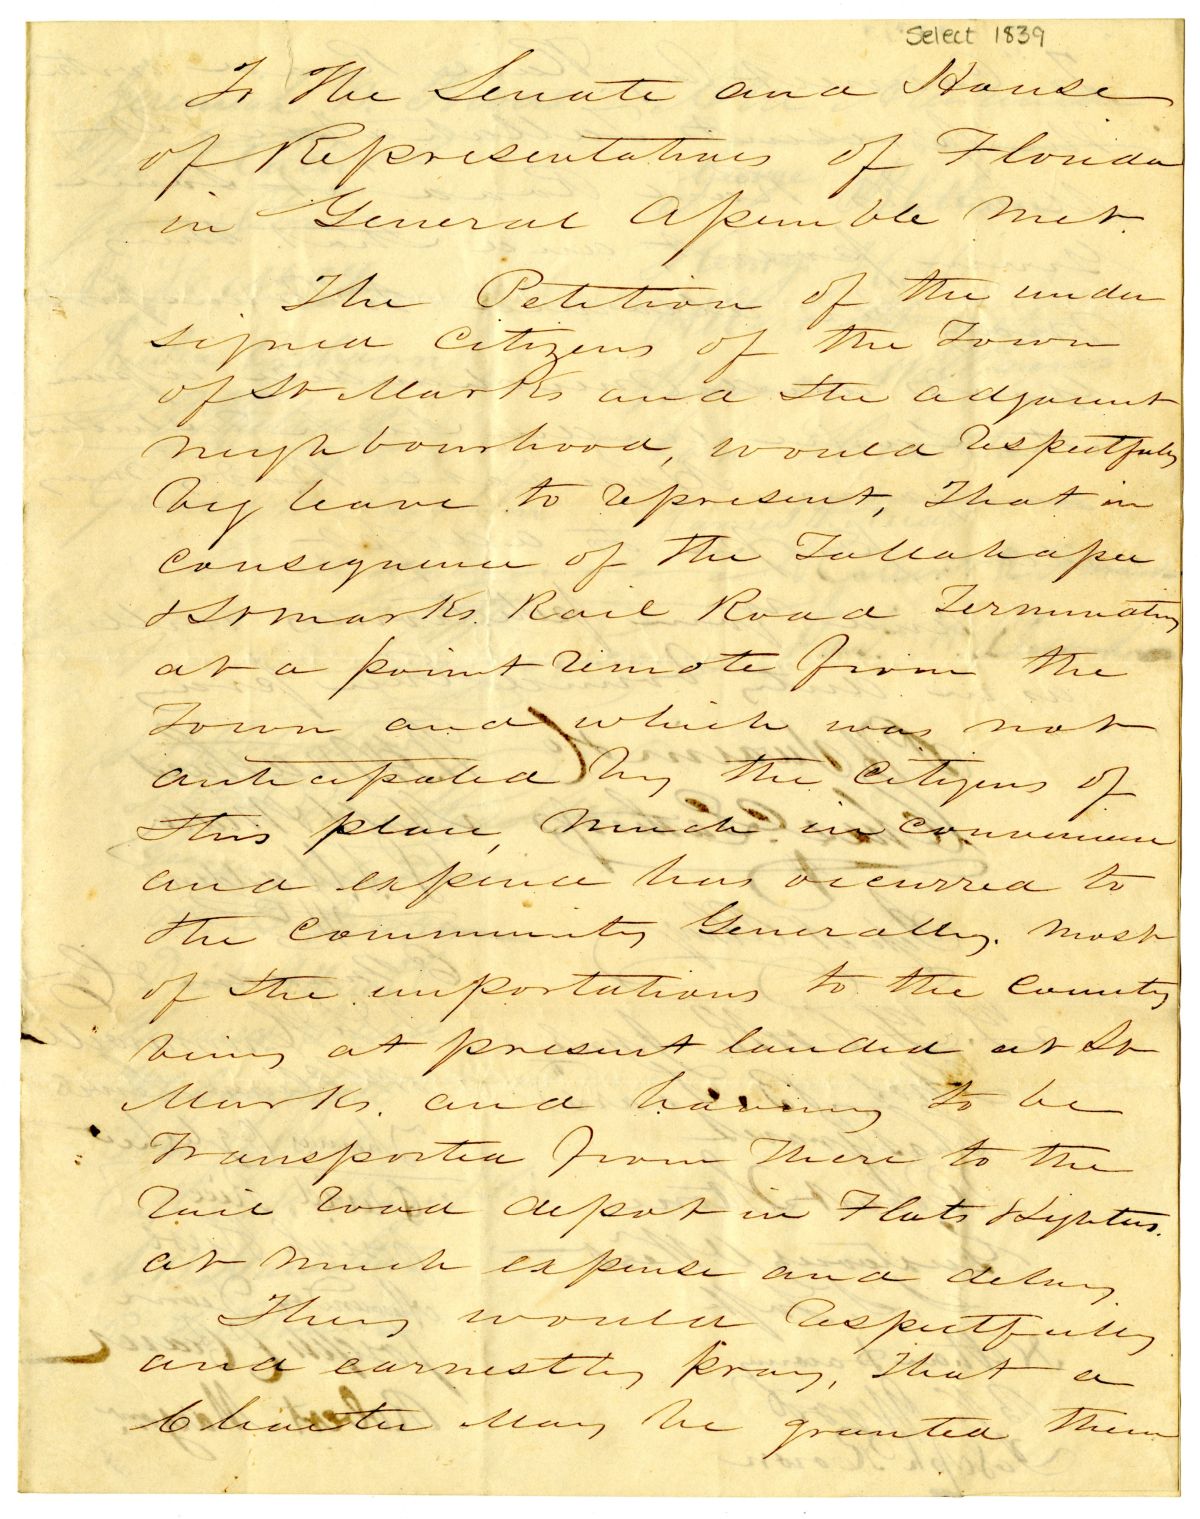 Select 1839
To The Senate and House
of Representatives of Florida
in General Assemble Met.
The Petition of the under
signed Citizens of the Town
of St Marks and the adjacent
neighbourhood, would respectfully
beg leave to represent, That in
consequence of the Tallahassee
& St marks. Rail Road Terminating
at a point remote from the
Town and which was not
anticipated by the Citizens of
this place, Much in convenience
and expence has occurred to
the Community Generally. Most
of the importations to the County
being at present landed at St
Marks. and having to be
Transported from There to the
rail road depot in Flats & Lighters.
at much expense and delay
They would respectfully
and earnestly pray, That a
Charter May be granted them